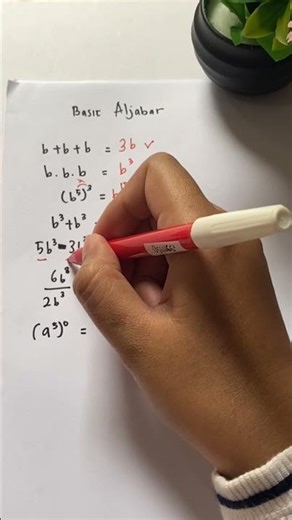 Basic Aljabar
b + b + b = 3b ✓
b . b . b = b³
(b⁵)³ = b
b³ + b³
5b³ - 3b
6b⁸ / 2b³
(a⁵)⁰ =